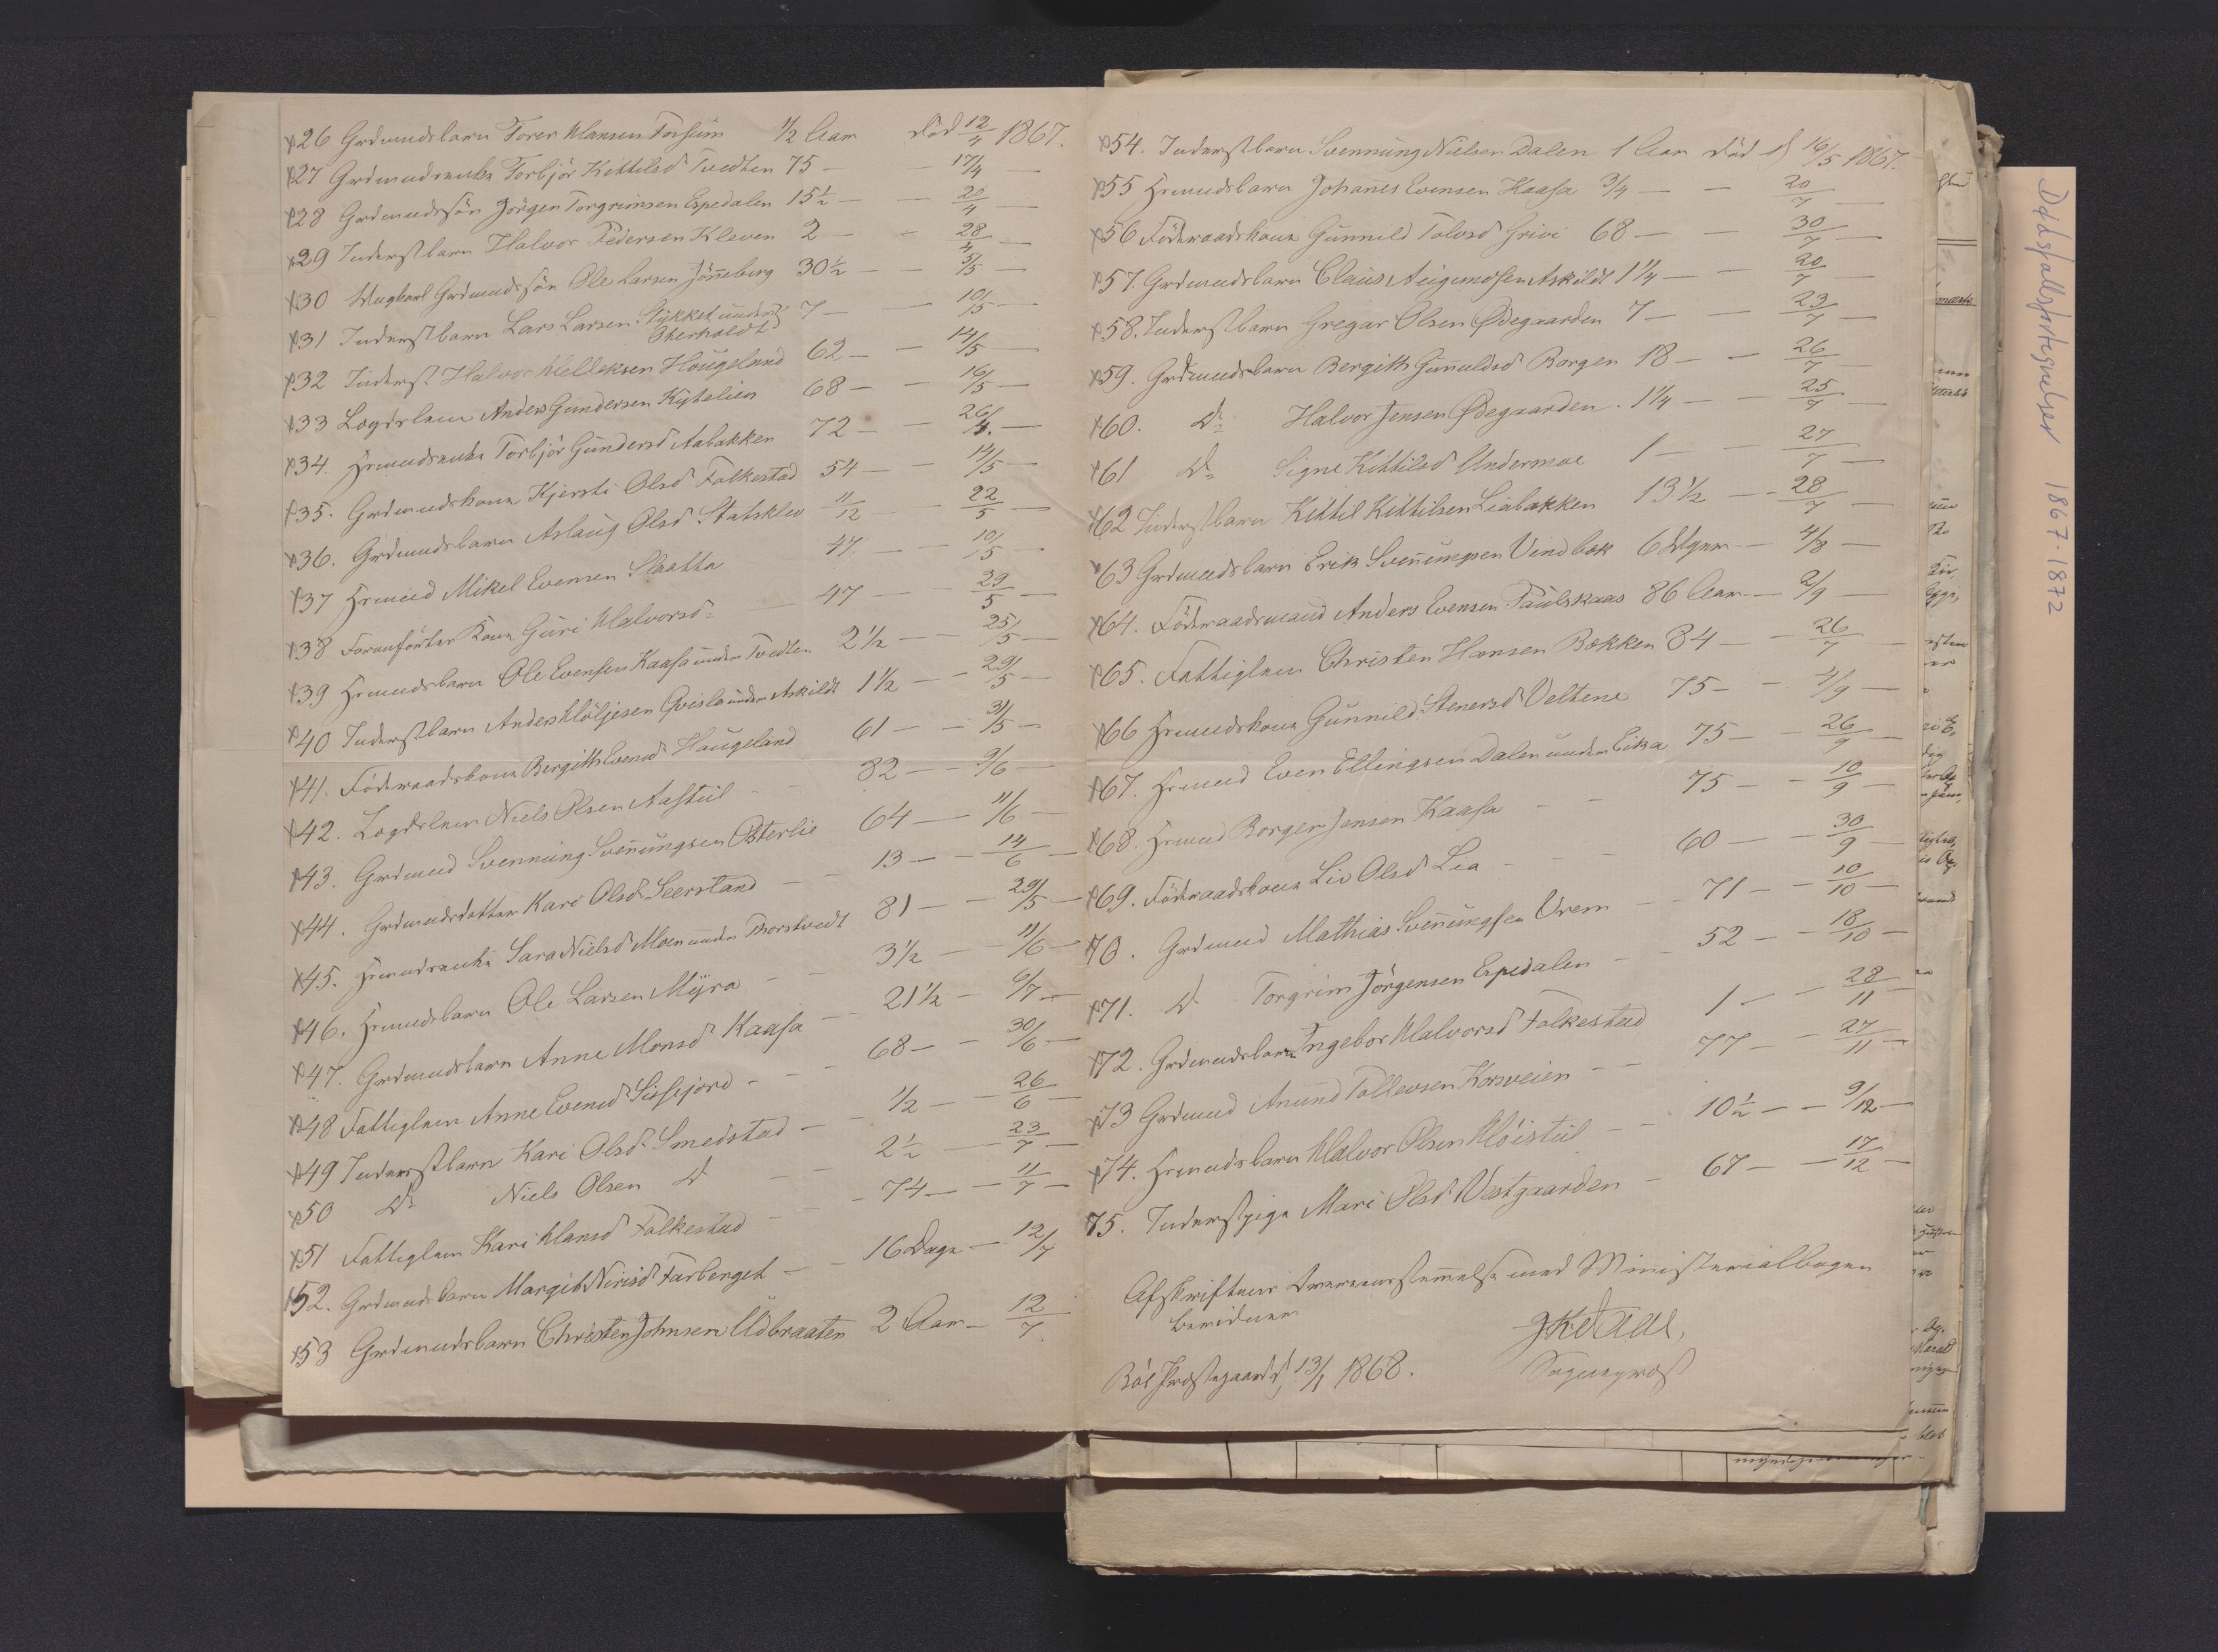 26 Grdmndsbarn Torer Hansen Forsum 1/2 Aar død 12/4 1867.
27 Grdmndsenke Torbjör Kittilsd Tvedten 75 — 17/4 —
28 Grdmndssön Jörgen Torgrimsen Espedalen 15 1/2 — 20/4 —
29 Inderstbarn Halvor Pedersen Kleven 2 — 28/4 —
30 Ungkarl Grdmndssön Ole Larsen Jönneberg 30 1/2 — 5/5 —
31 Inderstbarn Lars Larsen Stykket under Oterholdt 7 — 10/5
32 Inderst Halvor Kelleksen Haugeland 62 — 14/5 —
33 Logdslem Anders Gundersen Kyhelien 68 — 16/5 —
34. Hsmndsenke Torbjör Gundersd Aabakken 72 — 26/4. —
35. Grdmndskone Kjersti Olsd Folkestad 54 — 14/5 —
36. Grdmndsbarn Aslaug Olsd Statsklev 11/12 — 22/5 —
37 Hsmnd Mikel Evensen Slaatta 47 — 10/5 —
38 Foranförtes Kone Guri Halvorsd 47 — 29/5 —
39 Hsmndsbarn Ole Evensen Kaasa under Tvedten 2 1/2 — 25/5 —
40 Inderstbarn Anders Höljesen Qvisla under Askildt 1 1/2 — 29/5 —
41. Föderaadskone Bergith Evensd Haugeland 61 — 31/5 —
42. Logdslem Niels Olsen Aastul 82 — 9/6 —
43. Grdmnd Svennung Svenungsen Østerlie 64 — 11/6 —
44. Grdmndsdatter Kari Olsd Seerstand 13 — 14/6 —
45. Hsmndsenke Sara Nielsd Moen under Thorstvedt 81 — 29/5 —
46. Hsmndsbarn Ole Larsen Myra 3 1/2 — 11/6 —
47. Grdmndsbarn Anne Monsd Kaasa 21 1/2 — 6/7 —
48 Fattiglem Anne Evensd Sisjord 68 — 30/6 —
49 Inderstbarn Kari Olsd Smedstad 1/2 — 26/6 —
50 do Niels Olsen do 2 1/2 — 23/7 —
51 Fattiglem Kari Hansd Folkestad 74 — 11/7 —
52. Grdmndsbarn Margit Nirisd Farberget 16 Dage — 12/7
53 Grdmndsbarn Christen Johnsen Udbraaten 2 Aar — 12/7
54. Inderstbarn Svennung Nielsen Dalen 1 Aar død d 16/5 1867.
55 Hsmndsbarn Johanes Evensen Kaasa 3/4 — 20/7 —
56 Föderaadskone Gunnild Tolvsd Grivi 68 — 30/7 —
57. Grdmndsbarn Claus Augundsen Askildt 1 1/4 — 20/7 —
58. Inderstbarn Gregar Olsen Ødegaarden 7 — 23/7 —
59. Grdmndsbarn Bergith Gunnuldsd Borgen 18 — 26/7 —
60. do Halvor Jensen Ødegaarden 1 1/4 — 25/7 —
61 do Signe Kittilsd Undermoe 1 — 27/7 —
62 Inderstbarn Kittil Kittilsen Liabakken 13 1/2 — 28/7 —
63 Grdmndsbarn Erik Svenungsen Vindbæk 6 Uger — 4/8 —
64. Föderaadsmand Anders Evensen Paulskaas 86 Aar — 2/9 —
65. Fattiglem Christen Hansen Bækken 84 — 26/7 —
66 Hsmndskone Gunnild Stenersd Veltene 75 — 4/9 —
67. Hsmnd Even Ellingsen Dalen under Eika 75 — 26/9 —
68. Hsmnd Borger Jensen Kaasa 75 — 10/9 —
69. Föderaadskone Liv Olsd Lia 60 — 30/9 —
70. Grdmnd Mathias Svenungsen Vrem 71 — 10/10 —
71. do Torgrim Jörgensen Espedalen 52 — 18/10 —
72. Grdmndsbarn Ingebor Halvorsd Folkestad 1 — 28/11 —
73 Grdmnd Anund Tollevsen Korsveien 77 — 27/11 —
74. Hsmndsbarn Halvor Olsen Høistul 10 1/2 — 9/12 —
75. Inderstpige Mari Olsd Vestgaarden 67 — 17/12 —
Afskriftens Overensstemmelse med Ministerialbogen
bevidnes
Böe Præstegaard d 13/1 1868.
Sognepræst
Dødsfallsfortegnelser 1867-1872